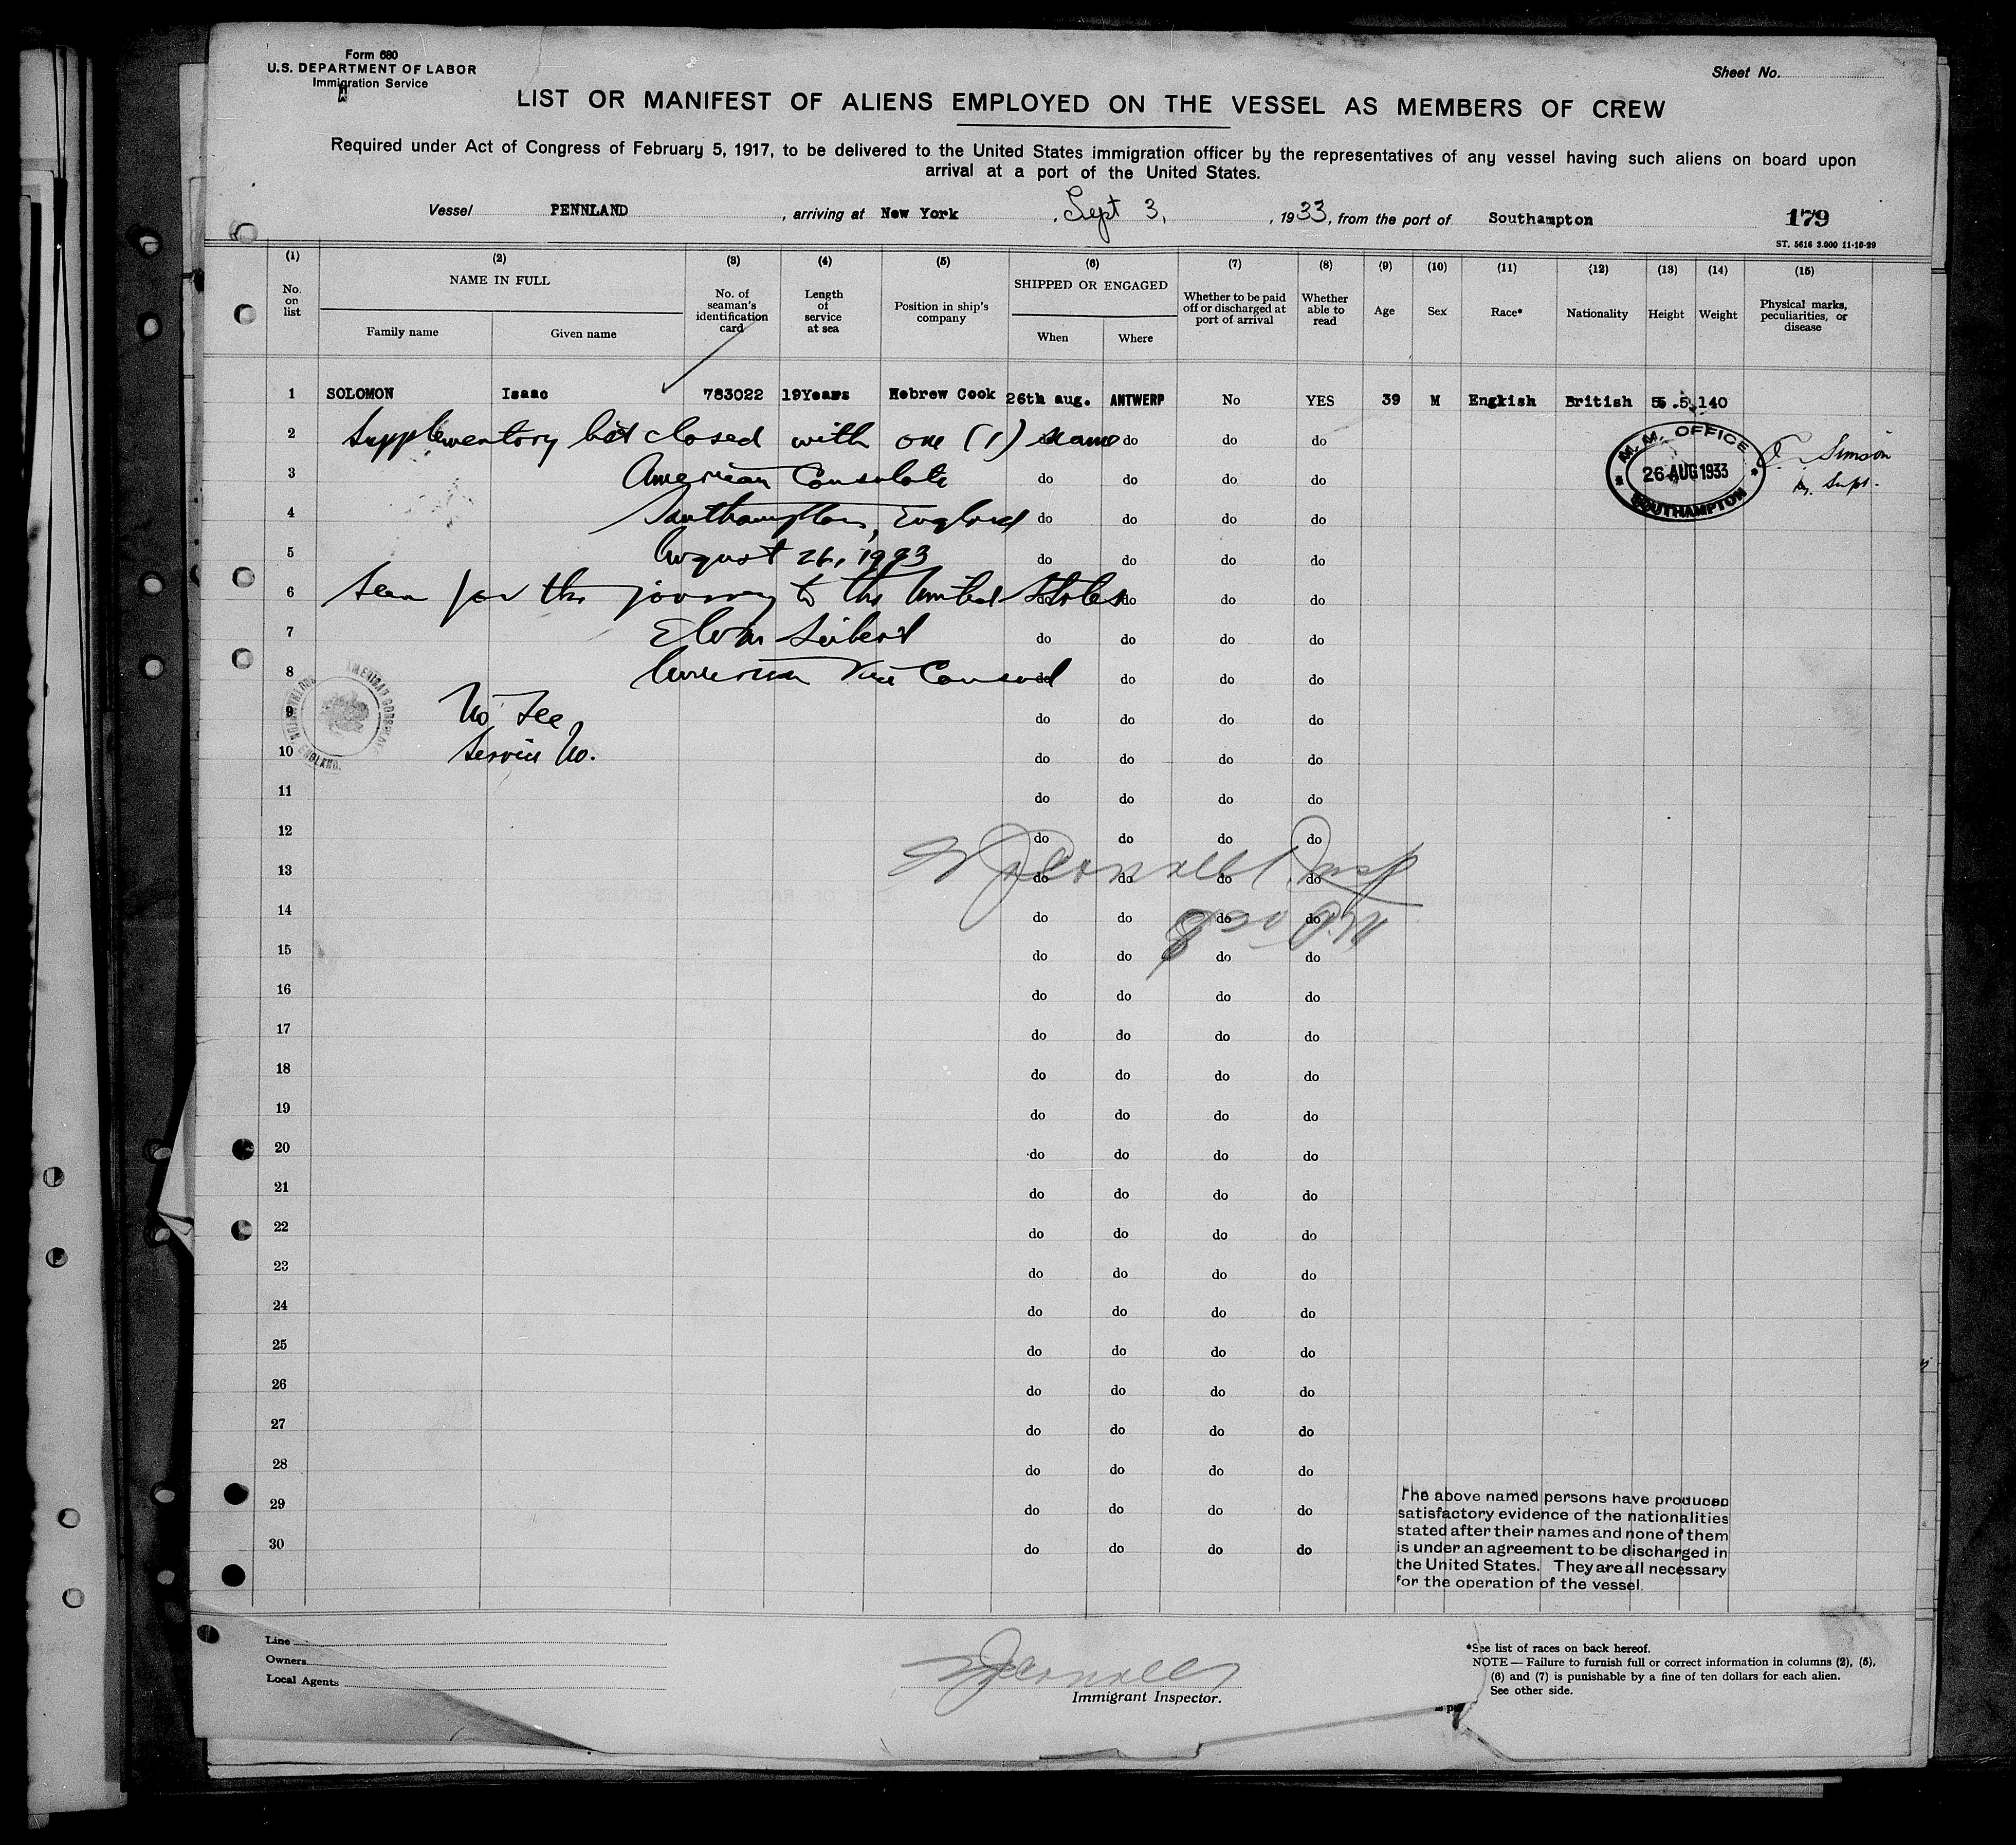 Form 680
U.S. DEPARTMENT OF LABOR
Immigration Service
Sheet No.
LIST OR MANIFEST OF ALIENS EMPLOYED ON THE VESSEL AS MEMBERS OF CREW
Required under Act of Congress of February 5, 1917, to be delivered to the United States immigration officer by the representatives of any vessel having such aliens on board upon
arrival at a port of the United States.
Vessel PENNLAND, arriving at New York, Sept 3, 1933, from the port of Southampton
179
ST. 5616 3.000 11-10-29
(1) (2) (3) (4) (5) (6) (7) (8) (9) (10) (11) (12) (13) (14) (15)
No. on list NAME IN FULL Family name Given name No. of seaman's identification card Length of service at sea Position in ship's company SHIPPED OR ENGAGED When Where Whether to be paid off or discharged at port of arrival Whether able to read Age Sex Race* Nationality Height Weight Physical marks, peculiarities, or disease
1 SOLOMON Isaac 783022 19Years Hebrew Cook 26th aug. ANTWERP No YES 39 M English British 5.5. 140
2 Supplementary list closed with one (1) name do do do do
3 American Consulate do do do do
4 Southampton, England do do do do
5 August 26, 1933 do do do do
6 Seen for the journey to the United States do do do do
7 Elvin Seibert do do do do
8 American Vice Consul do do do do
9 No fee do do do do
10 Service No. do do do do
M.M. OFFICE
26 AUG 1933
SOUTHAMPTON
Simson
Supt.
AMERICAN CONSULATE
SOUTHAMPTON
ENGLAND.
11 do do do do
12 do do do do
13 do do do do
14 do do do do
15 do do do do
16 do do do do
17 do do do do
18 do do do do
19 do do do do
20 do do do do
21 do do do do
22 do do do do
23 do do do do
24 do do do do
25 do do do do
26 do do do do
27 do do do do
28 do do do do
29 do do do do
30 do do do do
The above named persons have produced
satisfactory evidence of the nationalities
stated after their names and none of them
is under an agreement to be discharged in
the United States. They are all necessary
for the operation of the vessel.
Line
Owners
Local Agents
Immigrant Inspector.
*See list of races on back hereof.
NOTE — Failure to furnish full or correct information in columns (2), (5),
(6) and (7) is punishable by a fine of ten dollars for each alien.
See other side.